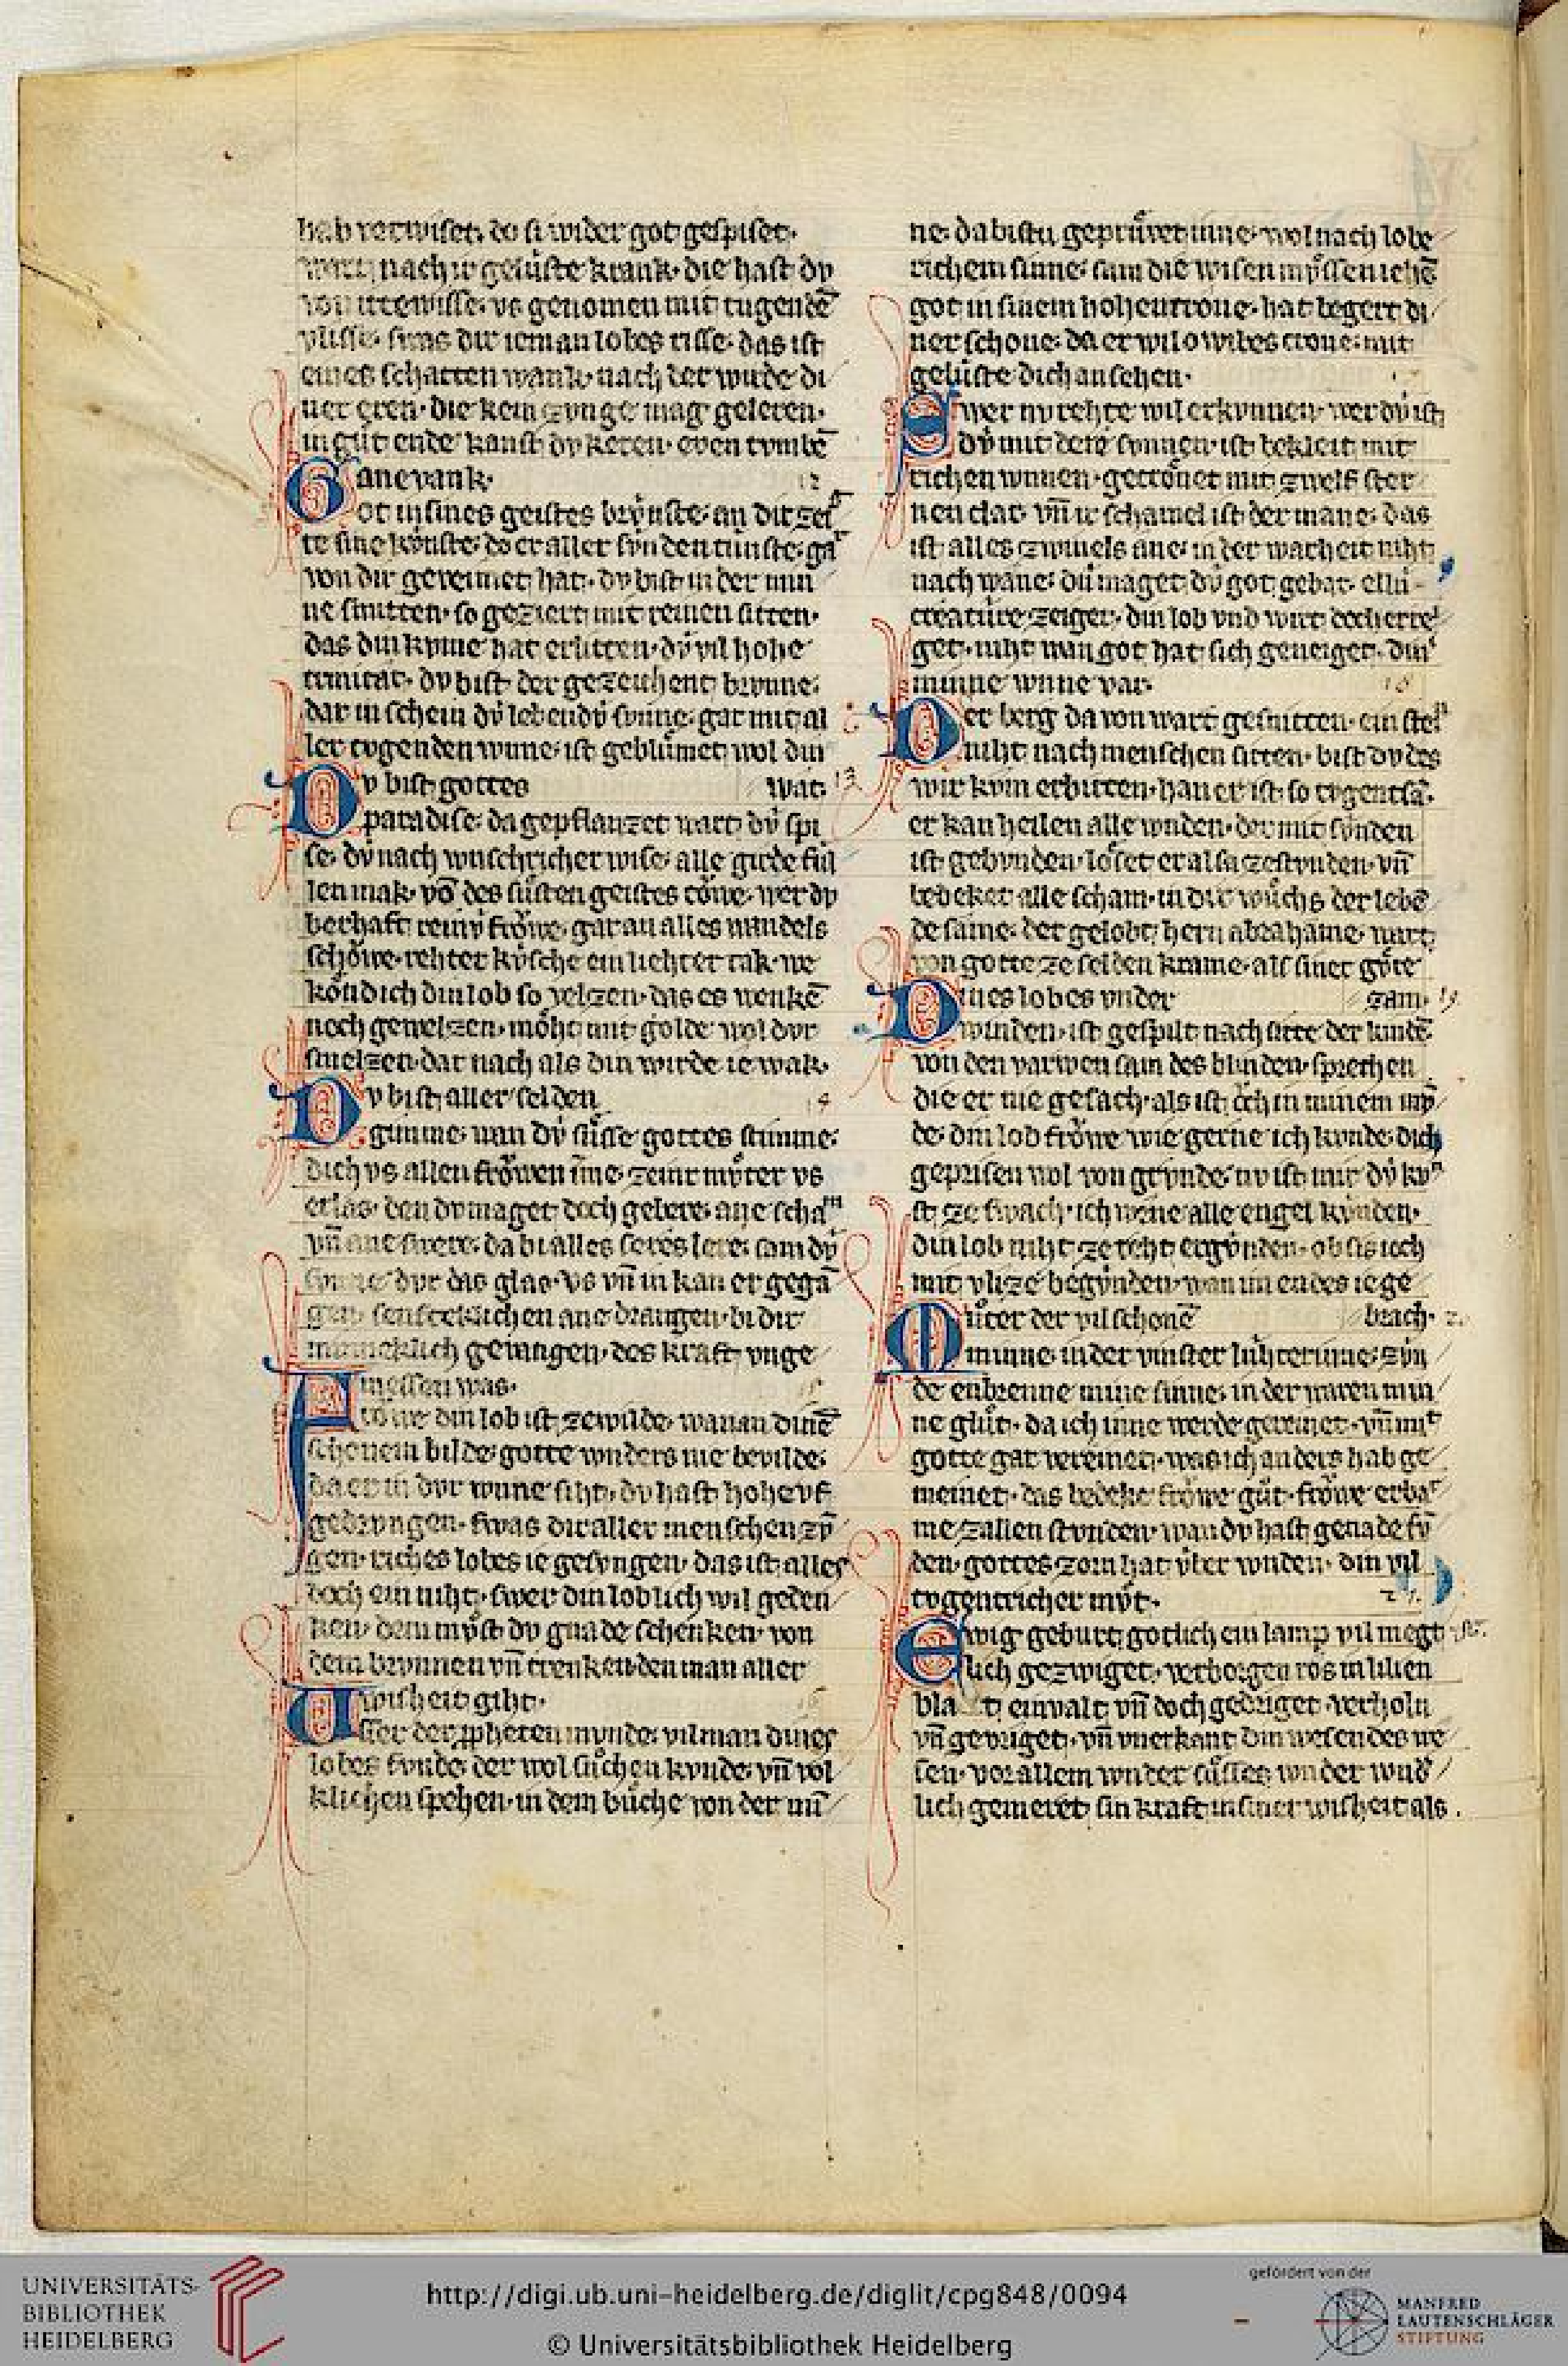 hab verwiset. do si wider got gespiset.
wart nach ir geluste krank. die hast dv
von itewisse. vs genomen mit tugendē
vlisse. swas dir ieman lobes risse. das ist
eines schatten wank. nach der wirde di
ner eren. die kein zvnge mag geleren.
in gůt ende kanst dv keren. even tvmbē
ane vank. 12
Got in sines geistes brv́nste. an dir zei
te sine kv́nste. do er aller sv́nden tunste. gar
von dir gereinet hat. dv bist in der min
ne smitten. so geziert mit reinen sitten.
das din kvme hat erlitten. dv́ vil hohe
trinitat. dv bist der gezeichent brvnne.
dar in schein dv́ lebendv́ svnne. gar mit al
ler tvgenden wnne. ist geblůmet wol din
Dv bist gottes wat. 13
paradise. da gepflanzet wart dv́ spi
se. dv́ nach wnschricher wise. alle girde fúl
len mak. vō des sůsten geistes tŏwe. wer dv
berhaft reinv́ frŏwe. gar an alles wandels
schŏwe. rehter kv́sche ein liehter tak. we
kŏnd ich din lob so velzen. das es wenkē
noch gewelzen. mŏht mit golde wol dvr
smelzen. dar nach als din wirde ie wak.
Dv bist aller selden 14
gimme. wan dv́ sůsse gottes stimme.
dich vs allen frŏwen ime. zeinr mv̊ter vs
erlas. den dv maget doch gebere. ane scham
vn̄ ane swere. da bi alles seres lere. sam dv́
svnne dvr das glas. vs vn̄ in kan er gegā
gen senfteklichen ane drangen. bi dir
minneklich gevangen. des kraft vnge
messen was. 15
Frŏwe din lob ist ze wilde. wan an dinē
schonem bilde. gotte wnders nie bevilde.
da er in dvr wnne siht. dv hast hohe vf
gedrvngen. swas dir aller menschen zv̄
gen. riches lobes ie gesvngen. das ist alles
doch ein niht. swer din loblich wil geden
ken. dem mv̊st dv gnade schenken. von
dem brvnnen vn̄ trenken. den man aller
wisheit giht. 16
Vsser der ꝓpheten mvnde. vil man dines
lobes fvnde. der wol sůchen kvnde. vn̄ vol
klichen spehen. in dem bůche von der mī
ne. da bistu geprůvet inne. wol nach lobe
richem sinne. sam die wisen mv̊ssen iehē
got in sinem hohen trone. hat begert di
ner schone. da er wil o wibes crone. mit
geluste dich an sehen.
Swer nv rehte wil erkvnnen. wer dv́ ist
dv́ mit der svnnen. ist bekleit mit
richen wnnen. gecrŏnet mit zwelf ster
nen clar. vn̄ ir schamel ist der mane. das
ist alles zwiuels ane. in der warheit niht
nach wane. dú maget dv́ got gebar. ellú
creature zeiger. din lob vnd wirt doch erre
get. niht wan got hat sich geneiget. din
minne wnne var. 18
Der berg da von wart gesnitten. ein stei
niht nach menschen sitten. bist dv des
wir kvm erbitten. han er ist so tvgentsā.
er kan heilen alle wnden. der mit sv́nden
ist gebvnden. lŏset er al sa ze stvnden. vn̄
bedeket alle scham. in dir wůchs der lebē
de same. der gelobt hern abrahame. wart
von gotte ze selden krame. als siner gŏte
Dines lobes vnder zam. 19
winden. ist gespilt nach sitte der kindē
von den varwen sam des blinden. sprechen
die er nie gesach. als ist ŏch in minem mv̄
de. din lob frŏwe wie gerne ich kvnde. dich
geprisen wol von grvnde. nv ist mir dv́ kvn
st ze swach. ich wene alle engel kv́nden.
din lob niht ze reht ergrv́nden. ob sis ioch
mit vlize begv́nden. wan im endes ie ge
Můter der vil schonē brach. 2.
minne. in der vinster luhterinne. zv́n
de enbrenne mine sinne. in der waren min
ne glůt. da ich inne werde gereinet. vn̄ mit
gotte gar vereinet. was ich anders hab ge
meinet. das bedeke frŏwe gůt. frŏwe erbar
me zallen stvnden. wan dv hast genade fv̄
den. gottes zorn hat v́ber wnden. din vil
tvgentricher mv̊t. 21.
Ewig geburt gotlich ein lamp vil megt
lich gezwiget. verborgen ros in lilien
bla t. einvalt vn̄ doch gedriget. verholn
vn̄ gevriget. vn̄ vnerkant din wesen des we
sen. vor allem wnder sůsses wnder wnd
lich gemeret. sin kraft in siner wisheit als.
UNIVERSITÄTS-
BIBLIOTHEK
HEIDELBERG
http://digi.ub.uni-heidelberg.de/diglit/cpg848/0094
© Universitätsbibliothek Heidelberg
gefördert von der
MANFRED
LAUTENSCHLÄGER
STIFTUNG